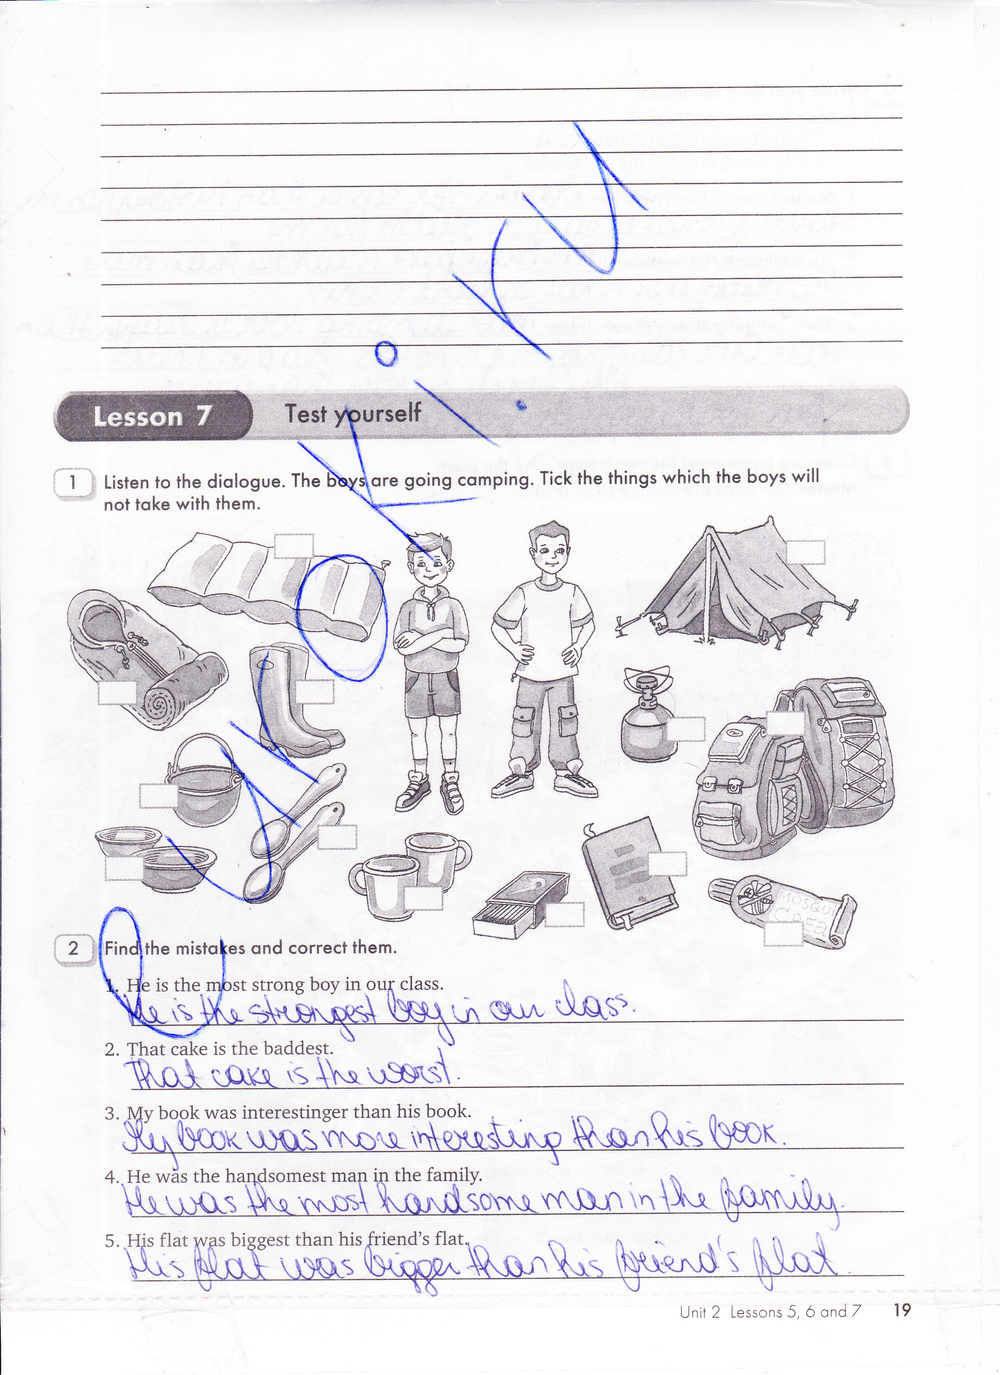 Lesson 7 Test yourself
1 Listen to the dialogue. The boys are going camping. Tick the things which the boys will
not take with them.
MOSQUI
CREA
2 Find the mistakes and correct them.
1. He is the most strong boy in our class.
He is the strongest boy in our class.
2. That cake is the baddest.
That cake is the worst.
3. My book was interestinger than his book.
My book was more interesting than his book.
4. He was the handsomest man in the family.
He was the most handsome man in the family.
5. His flat was biggest than his friend's flat.
His flat was bigger than his friend's flat.
Unit 2 Lessons 5, 6 and 7 19